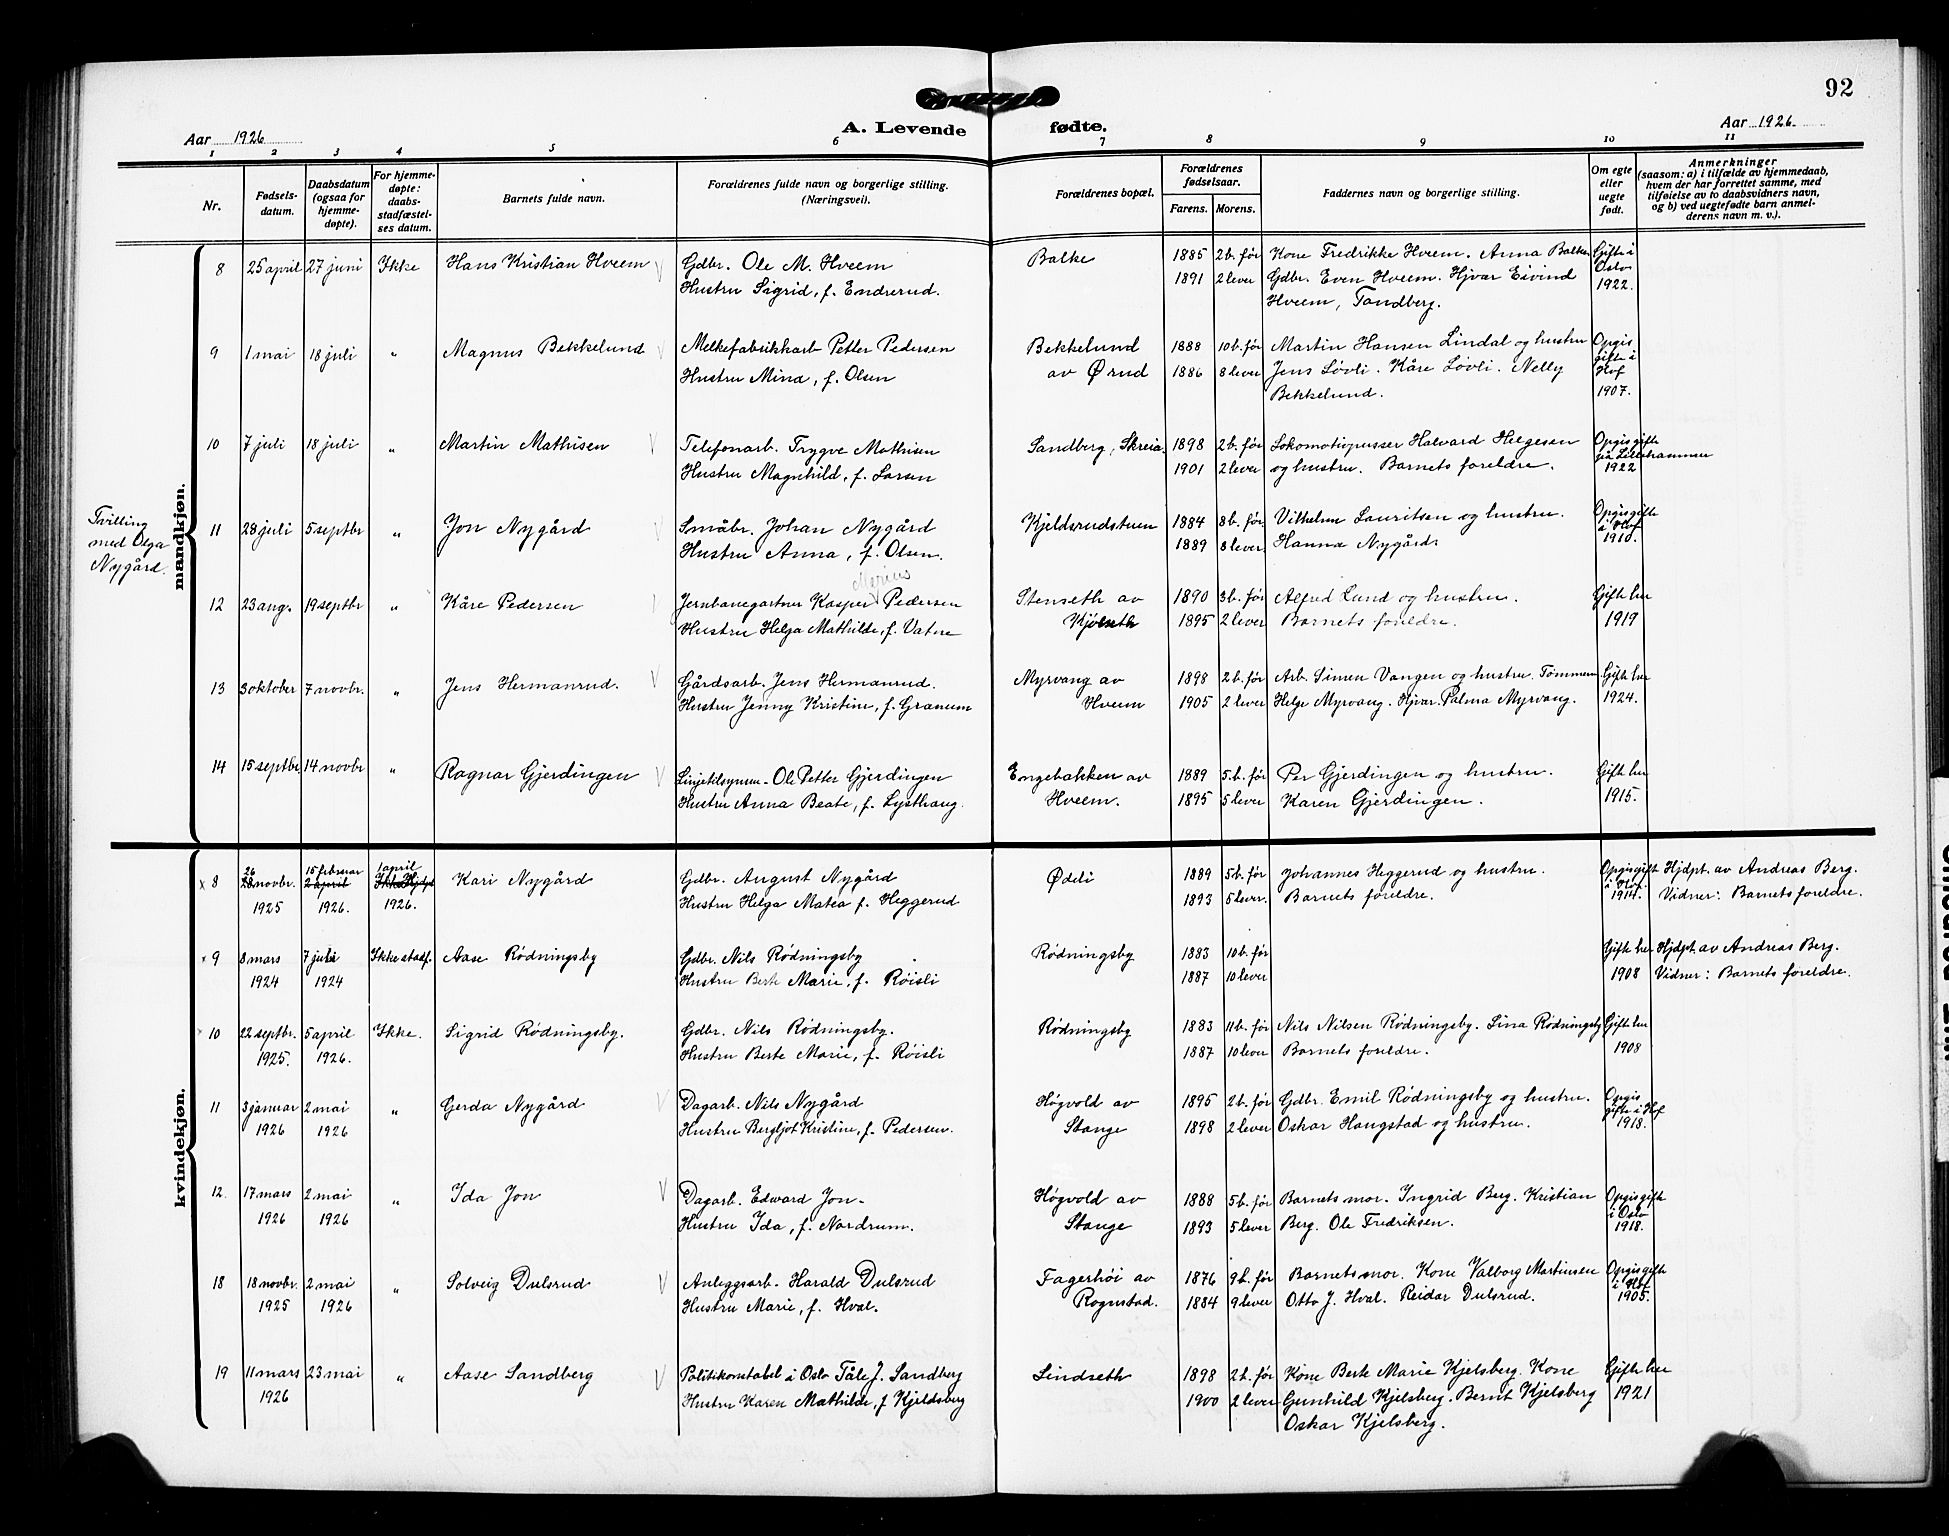 92
Aar 1926
A. Levende fødte.
Aar 1926.
1 2 3 4 5 6 7 8 9 10 11
Nr.
Fødsels-
datum.
Daabsdatum
(ogsaa for
hjemme-
døpte).
For hjemme-
døpte:
daabs-
stadfæstel-
ses datum.
Barnets fulde navn.
Forældrenes fulde navn og borgerlige stilling.
(Næringsvei).
Forældrenes bopæl.
Forældrenes
fødselsaar.
Farens. Morens.
Faddernes navn og borgerlige stilling.
Om egte
eller
uegte
født.
Anmerkninger
(saasom: a) i tilfælde av hjemmedaab,
hvem der har forrettet samme, med
tilføielse av to daabsvidners navn,
og b) ved uegtefødte barn anmel-
derens navn m. v.).
mandkjøn.
8 25 april 27 juni Ikke Hans Kristian Hveem Gdbr. Ole M. Hveem Balke 1885 2 b. før Kone Fredrikke Hveem. Anna Balke Gifte i
Hustru Sigrid, f. Endrerud. 1891 2 lever Gdbr. Even Hveem. Hjvar Eivind Oslo
Hveem, Tandberg. 1922.
9 1 mai 18 juli " Magnus Bekkelund Melkefabrikkarb Petter Pedersen Bekkelund 1888 10 b. før Martin Hansen Lindal og hustru Opgis
Hustru Mina, f. Olsen av Ørud 1886 8 lever Jens Løvli. Kåre Løvli. Nelly gifte i
Hof
Bekkelund. 1907.
10 7 juli 18 juli " Martin Mathisen Telefonarb. Trygve Mathisen Sandberg, Skreia. 1898 2 b. før Lokomotivpusser Halvard Helgesen Opgis gifte
på Lillehammer
Hustru Magnhild, f. Larsen 1901 2 lever og hustru. Barnets foreldre. 1922
Tvilling
med Olga
Nygård.
11 28 juli 5 septbr " Jon Nygård Småbr. Johan Nygård Kjeldsrudstuen 1884 8 b. før Vilhelm Lauritsen og hustru. Opgis gifte
i Hof
Hustru Anna, f. Olsen. 1889 8 lever Hanna Nygård. 1910.
Marius
12 23 aug. 19 septbr " Kåre Pedersen Jernbanegartner Kasper Pedersen Stenseth av 1890 3 b. før Alfred Lund og hustru. Gifte her
Hustru Helga Mathilde, f. Vatne Kjølseth 1895 2 lever Barnets foreldre. 1919
13 3 oktober 7 novbr. " Jens Hermanrud. Gårdsarb. Jens Hermanrud. Myrvang av 1898 2 b. før Arb. Simen Vangen og hustru. Tømmerm Gifte her
Hustru Jenny Kristine, f. Granum Hveem 1905 2 lever Helge Myrvang. Hjvar. Palma Myrvang. 1924.
14 15 septbr 14 novbr " Ragnar Gjerdingen Linjetilsynsm. Ole Petter Gjerdingen Engebakken av 1889 5. b. før Per Gjerdingen og hustru. Gifte her
Hustru Anna Beate, f. Lysthaug. Hveem. 1895 5 lever Karen Gjerdingen. 1915.
kvindekjøn.
26 15 februar 1 april
x 8 28 novbr. 2 april Ikke Hjdpt Kari Nygård Gdbr. August Nygård Ødeli 1889 5 b. før Johannes Heggerud og hustru. Opgis gift Hjdpt. av Andreas Berg.
i Hof
1925 1926. 1926. Hustru Helga Matea f. Heggerud 1893 5 lever. Barnets foreldre. 1914. Vidner: Barnets foreldre.
x 9 8 mars 7 juli Ikke stadf. Aase Rødningsby Gdbr. Nils Rødningsby Rødningsby 1883 10 b. før Gifte her Hjdpt av Andreas Berg.
1924 1924 Hustru Berte Marie, f. Røisli 1887 10 lever 1908 Vidner: Barnets foreldre.
x 10 22 septbr. 5 april Ikke. Sigrid Rødningsby. Gdbr. Nils Rødningsby. Rødningsby 1883 11 b. før Nils Nilsen Rødningsby. Lina Rødningsby Gifte her
1925. 1926. Hustru Berte Marie, f. Røisli 1887 10 lever Barnets foreldre. 1908
11 3 januar 2 mai " Gerda Nygård Dagarb. Nils Nygård Høgvold av 1895 2 b. før Gdbr. Emil Rødningsby og hustru. Opgis
gifte i Hof
1926 1926 Hustru Bergljot Kristine, f. Pedersen. Stange 1898 2 lever Oskar Haugstad og hustru. 1918.
12. 17 mars 2 mai " Ida Jon Dagarb. Edward Jon. Høgvold av 1888 5 b. før Barnets mor. Ingrid Berg. Kristian Opgis gifte
i Oslo
1926 1926 Hustru Ida, f. Nordrum. Stange 1893 5 lever Berg. Ole Fredriksen. 1918.
18 18 novbr. 2 mai " Solveig Dulsrud Anleggsarb. Harald Dulsrud Fagerhøi av 1876 9 b. før Barnets mor. Kone Valborg Martinsen Opgis gifte
i Hof
1925 1926 Hustru Marie, f. Hval. Rognstad. 1884 9 lever Otto J. Hval. Reidar Dulsrud. 1905.
19 11 mars 23 mai " Aase Sandberg Politikonstabel i Oslo Tåle J. Sandberg Lindseth 1898 2 b. før Kone Berte Marie Kjelsberg. Kone Gifte her
1926 Hustru Karen Mathilde, f Kjeldsberg 1900 2 lever Gunhild Kjelsberg. Bernt Kjelsberg 1921
Oskar Kjelsberg.